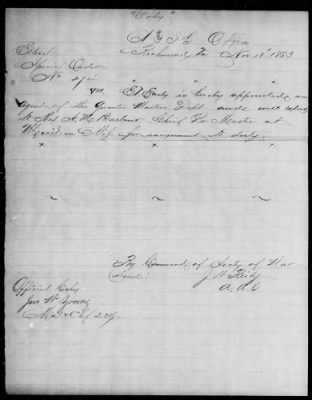 "Copy"
A & I G Office
Richmond, Va Nov 18" 1863
Extract
Special Order
No 274
VIII El Early is hereby appointed an
agent of the Quarter Master Dept and will report
to Maj A. M. Barbour Chief Qr Master at
Meridian Miss for assignment to duty.
By Command of Secty of War
(Signed)
A. A. G
Official Copy
Jno W Young
Maj & Q M